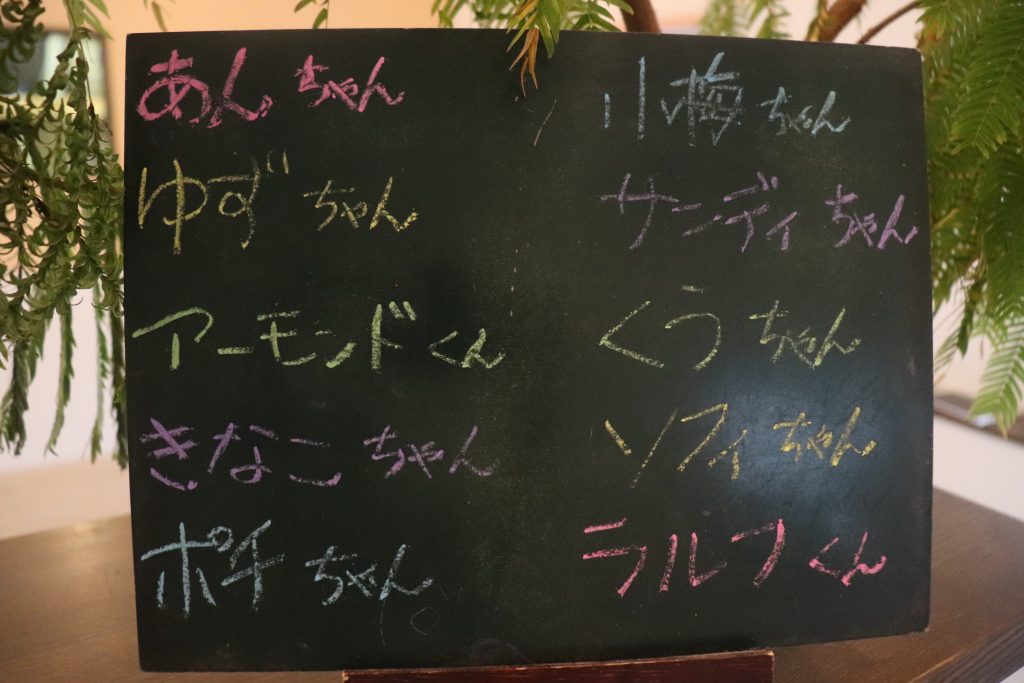 あんちゃん
ゆずちゃん
アーモンドくん
きなこちゃん
ポチちゃん
小梅ちゃん
サンディちゃん
くうちゃん
ソフィちゃん
ラルフくん